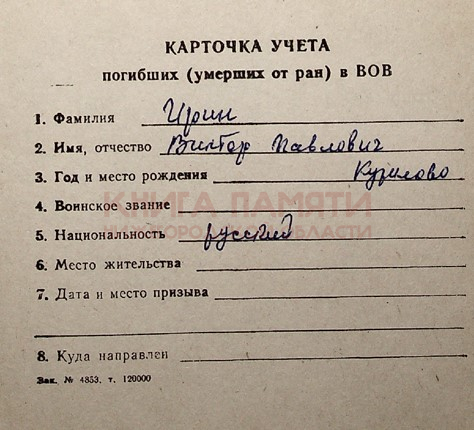 КАРТОЧКА УЧЕТА
погибших (умерших от ран) в ВОВ
1. Фамилия Ирин
2. Имя, отчество Виктор Павлович
3. Год и место рождения Курилово
КНИГА ПАМЯТИ
4. Воинское звание
НИЖЕГОРОДСКОЙ ОБЛАСТИ
5. Национальность русский
6. Место жительства
7. Дата и место призыва
8. Куда направлен
Зак. № 4853. т. 120000